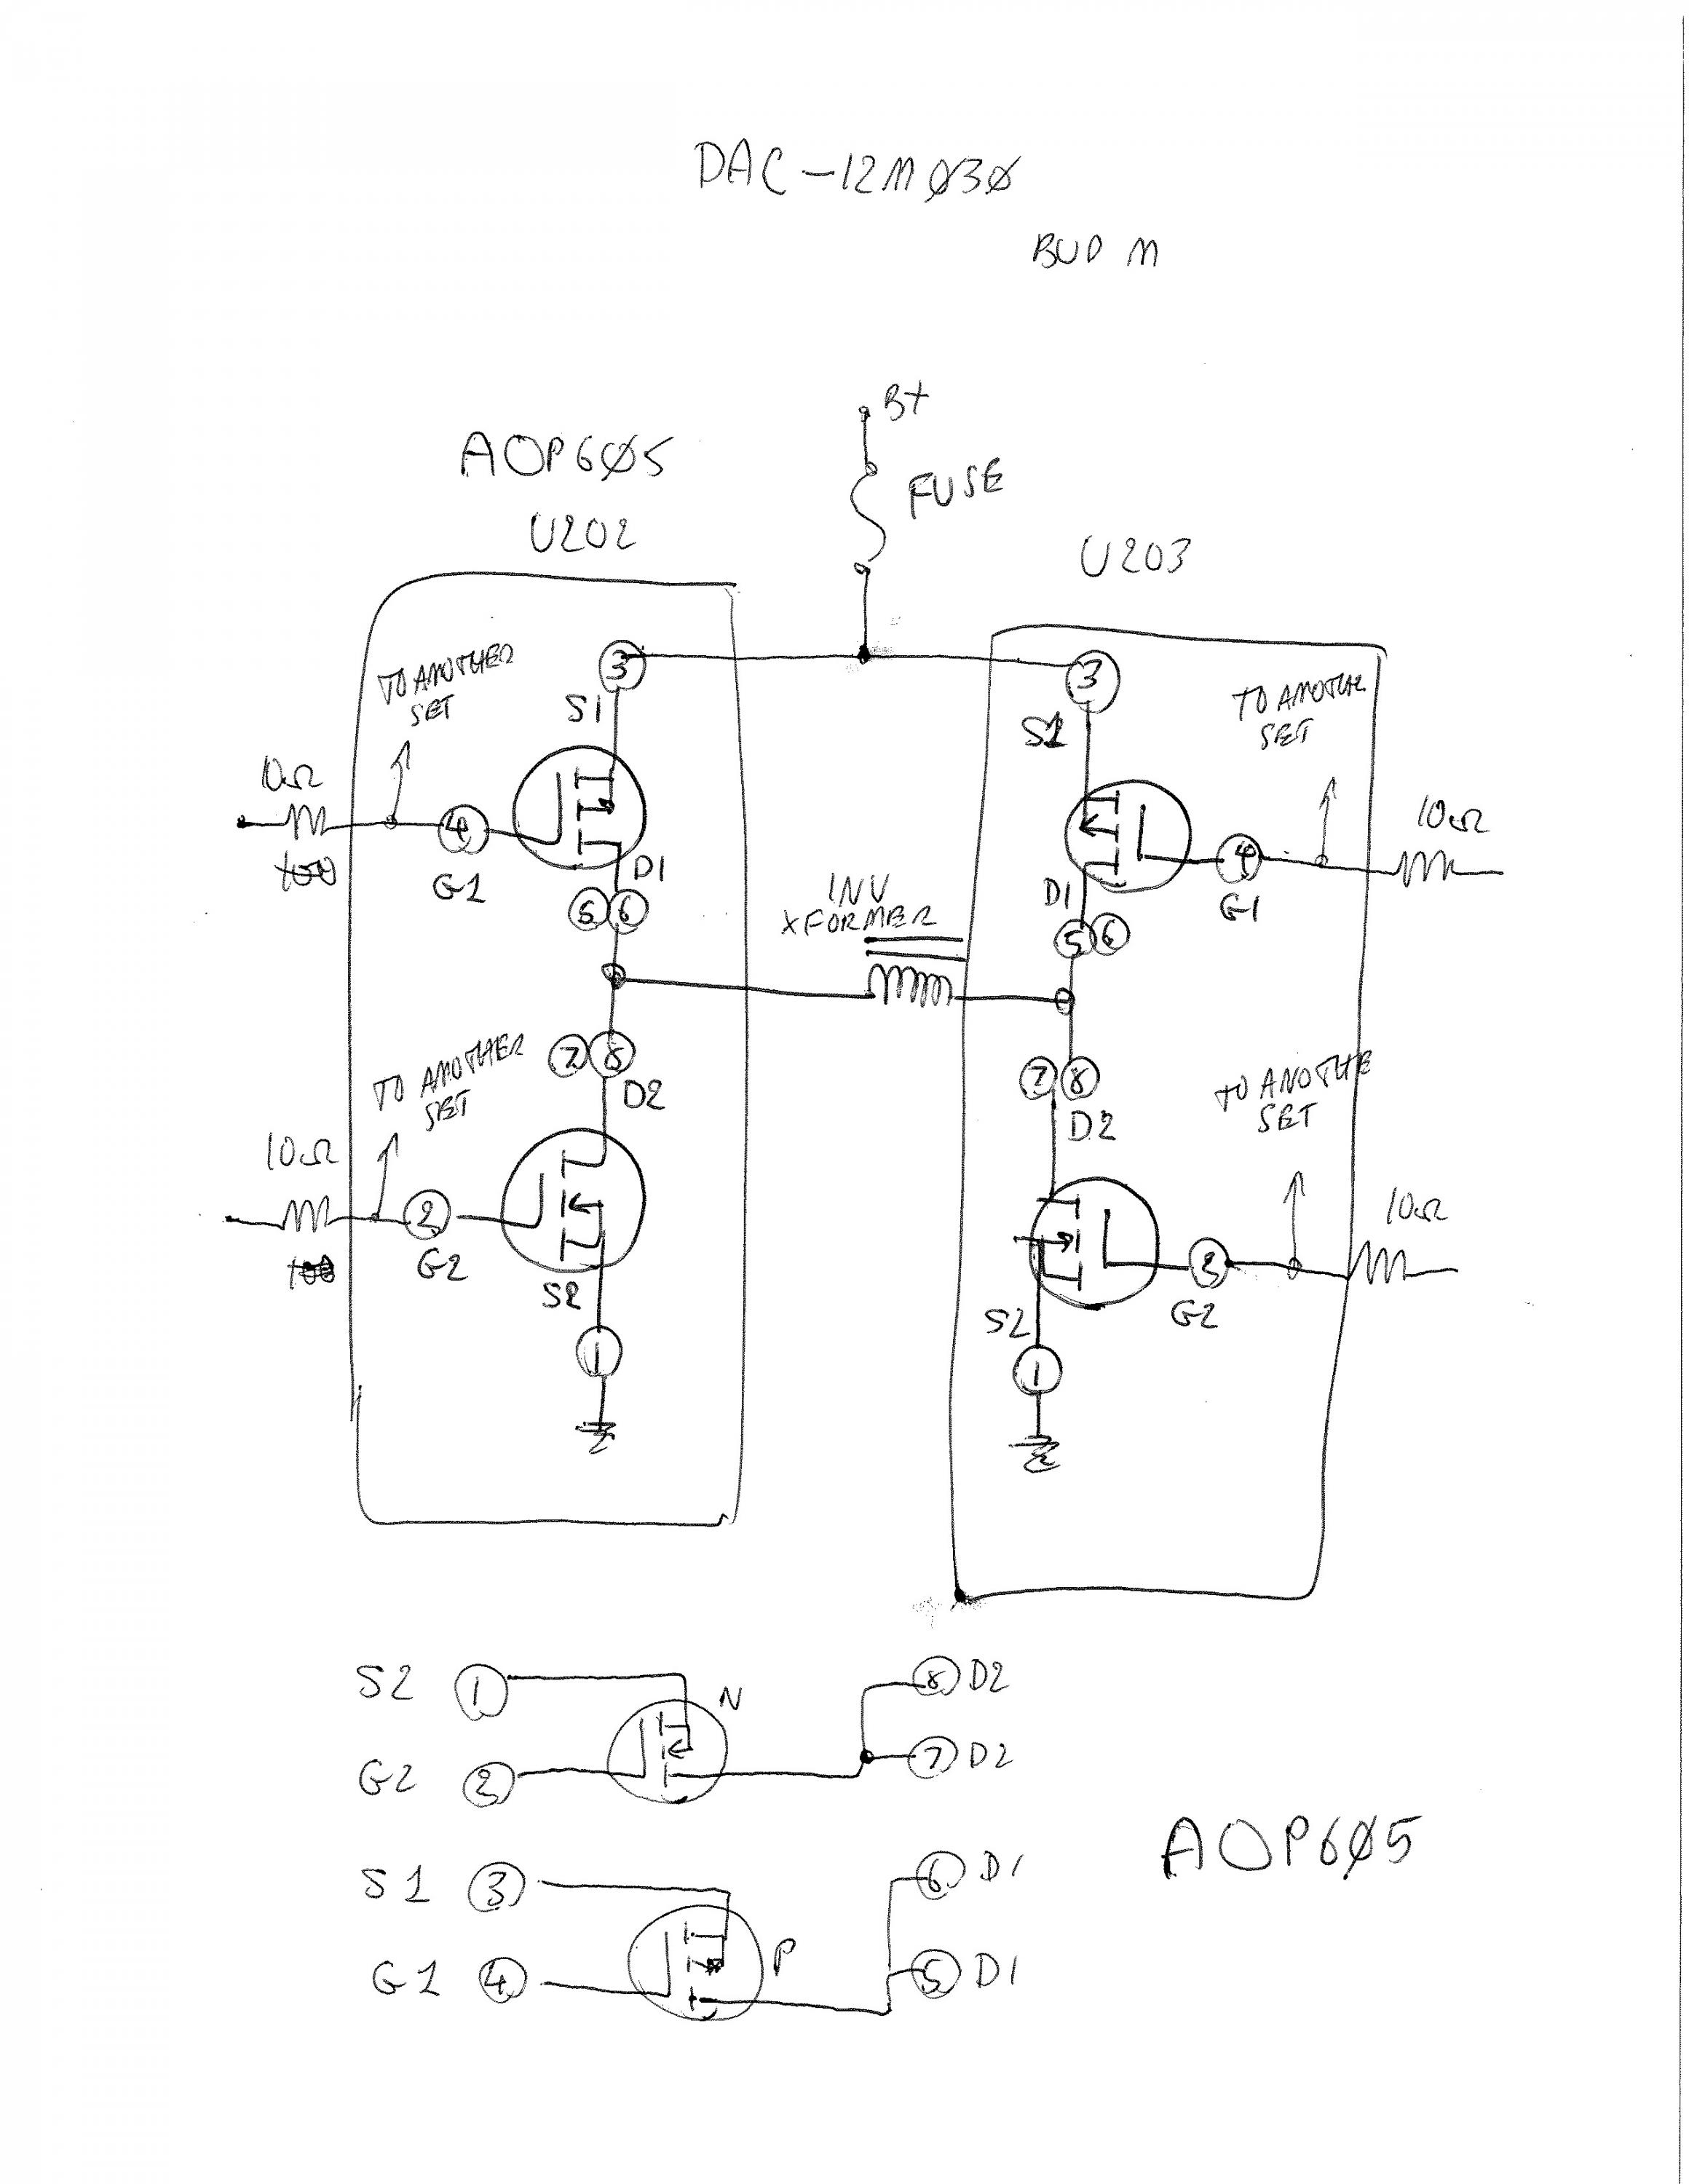 DAC-12MØ3Ø
BUD M
B+
FUSE
AOP6Ø5
U202
U203
TO ANOTHER
SET
3
S1
10Ω
4
G1
D1
5 6
3
S1
TO ANOTHE
SET
10Ω
4
G1
D1
5 6
INV
XFORMER
7 8
D2
TO ANOTHER
SET
10Ω
100
2
G2
S2
1
7 8
D2
TO ANOTHE
SET
10Ω
2
G2
S2
1
S2 1 N 8 D2
G2 2 7 D2
S1 3 P 6 D1
G1 4 5 D1
AOP6Ø5